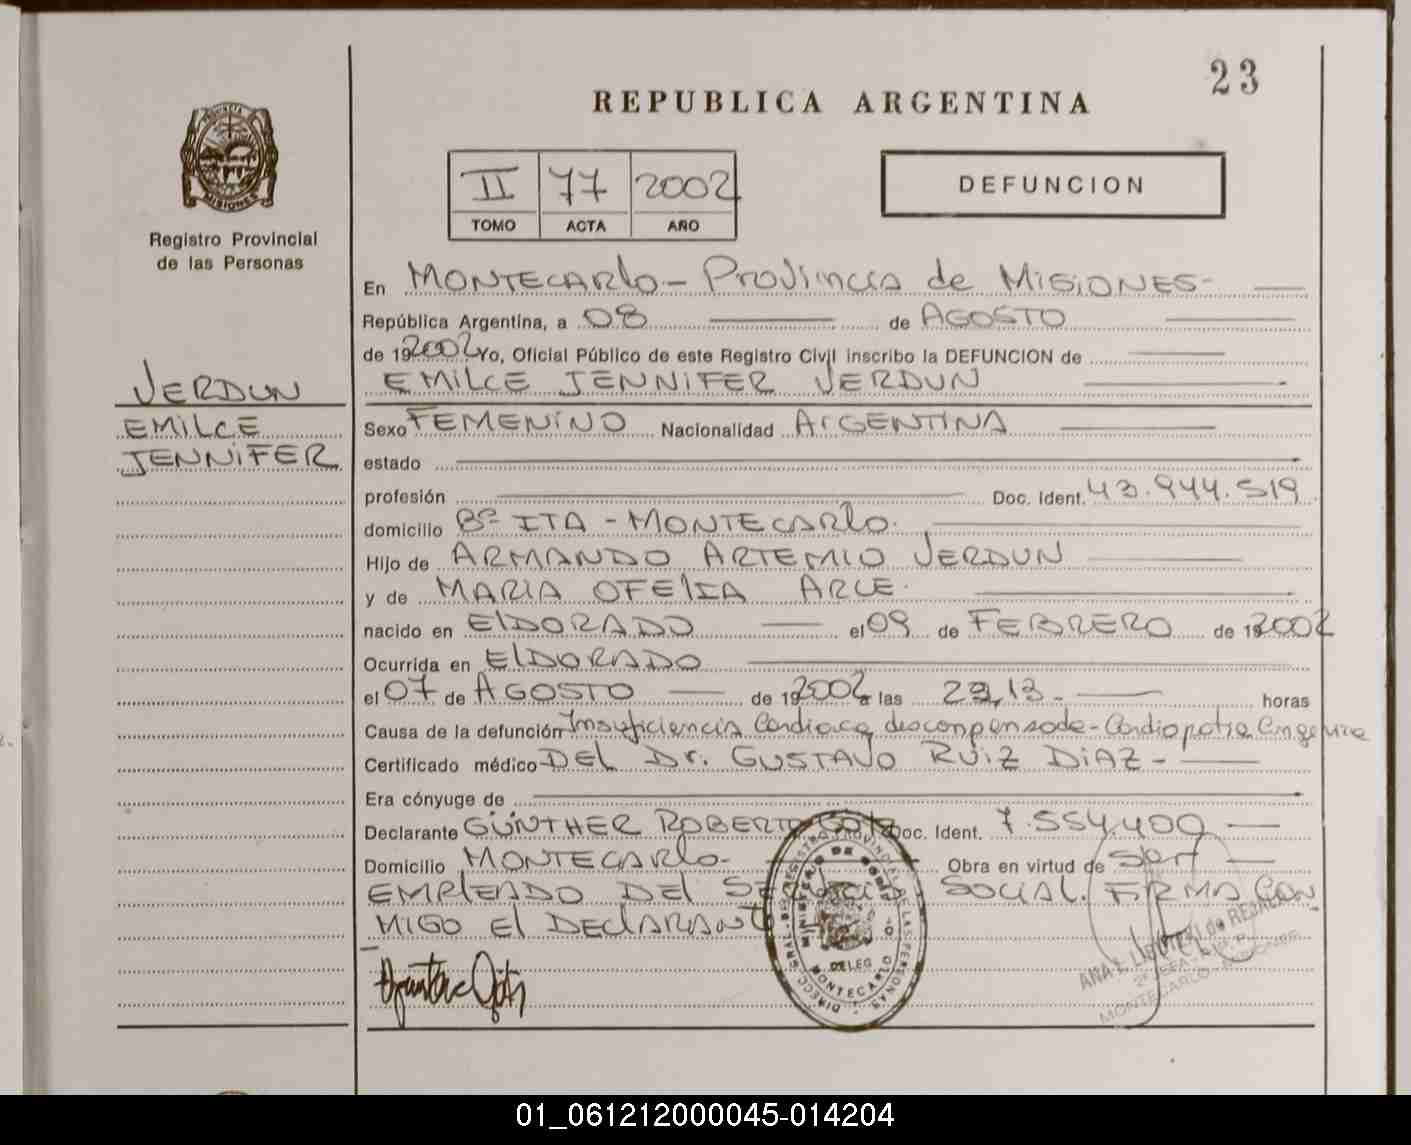 23
REPUBLICA ARGENTINA
II 77 2002
TOMO ACTA AÑO
DEFUNCION
PROVINCIA
MISIONES
Registro Provincial
de las Personas
VERDUN
EMILCE
JENNIFER
En MONTECARLO - PROVINCIA de MISIONES-
República Argentina, a 08 de AGOSTO
de 192002 Yo, Oficial Público de este Registro Civil inscribo la DEFUNCION de
EMILCE JENNIFER VERDUN
Sexo FEMENINO Nacionalidad ARGENTINA
estado
profesión Doc. Ident. 43.944.519
domicilio Bº ITA - MONTECARLO.
Hijo de ARMANDO ARTEMIO VERDUN
y de MARIA OFELIA ARCE.
nacido en ELDORADO el 09 de FEBRERO de 192002
Ocurrida en ELDORADO
el 07 de AGOSTO de 192002 a las 22,13 horas
Causa de la defunción Insuficiencia Cardiaca descompensada - Cardiopatia
Certificado médico DEL Dr. GUSTAVO RUIZ DIAZ -
Era cónyuge de
Declarante GÜNTHER ROBERTO Doc. Ident. 7.554.400
Domicilio MONTECARLO- Obra en virtud de ser
EMPLEADO DEL SOCIAL. FIRMA CON
MIGO EL DECLARANTE
DIRECC. GRAL. DEL REGISTRO PROVINCIAL DE LAS PERSONAS
MINISTERIO DE GOBIERNO
DELEG
MONTECARLO
MONTECARLO - MISIONES
01_061212000045-014204